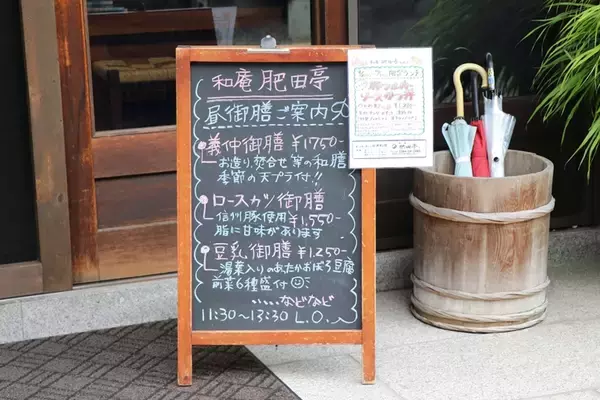 和庵 肥田亭
昼御膳ご案内
義仲御膳 ¥1750-
お造り、焚合せ等の和膳
季節の天プラ付!!
ロースカツ御膳
信州豚使用 ¥1,550-
脂に甘味があります
豆乳御膳 ¥1.250-
湯葉入りのあたかおぼろ豆腐
前菜6種盛付
……などなど
11:30〜13:30 L.O.
ソースかつ丼